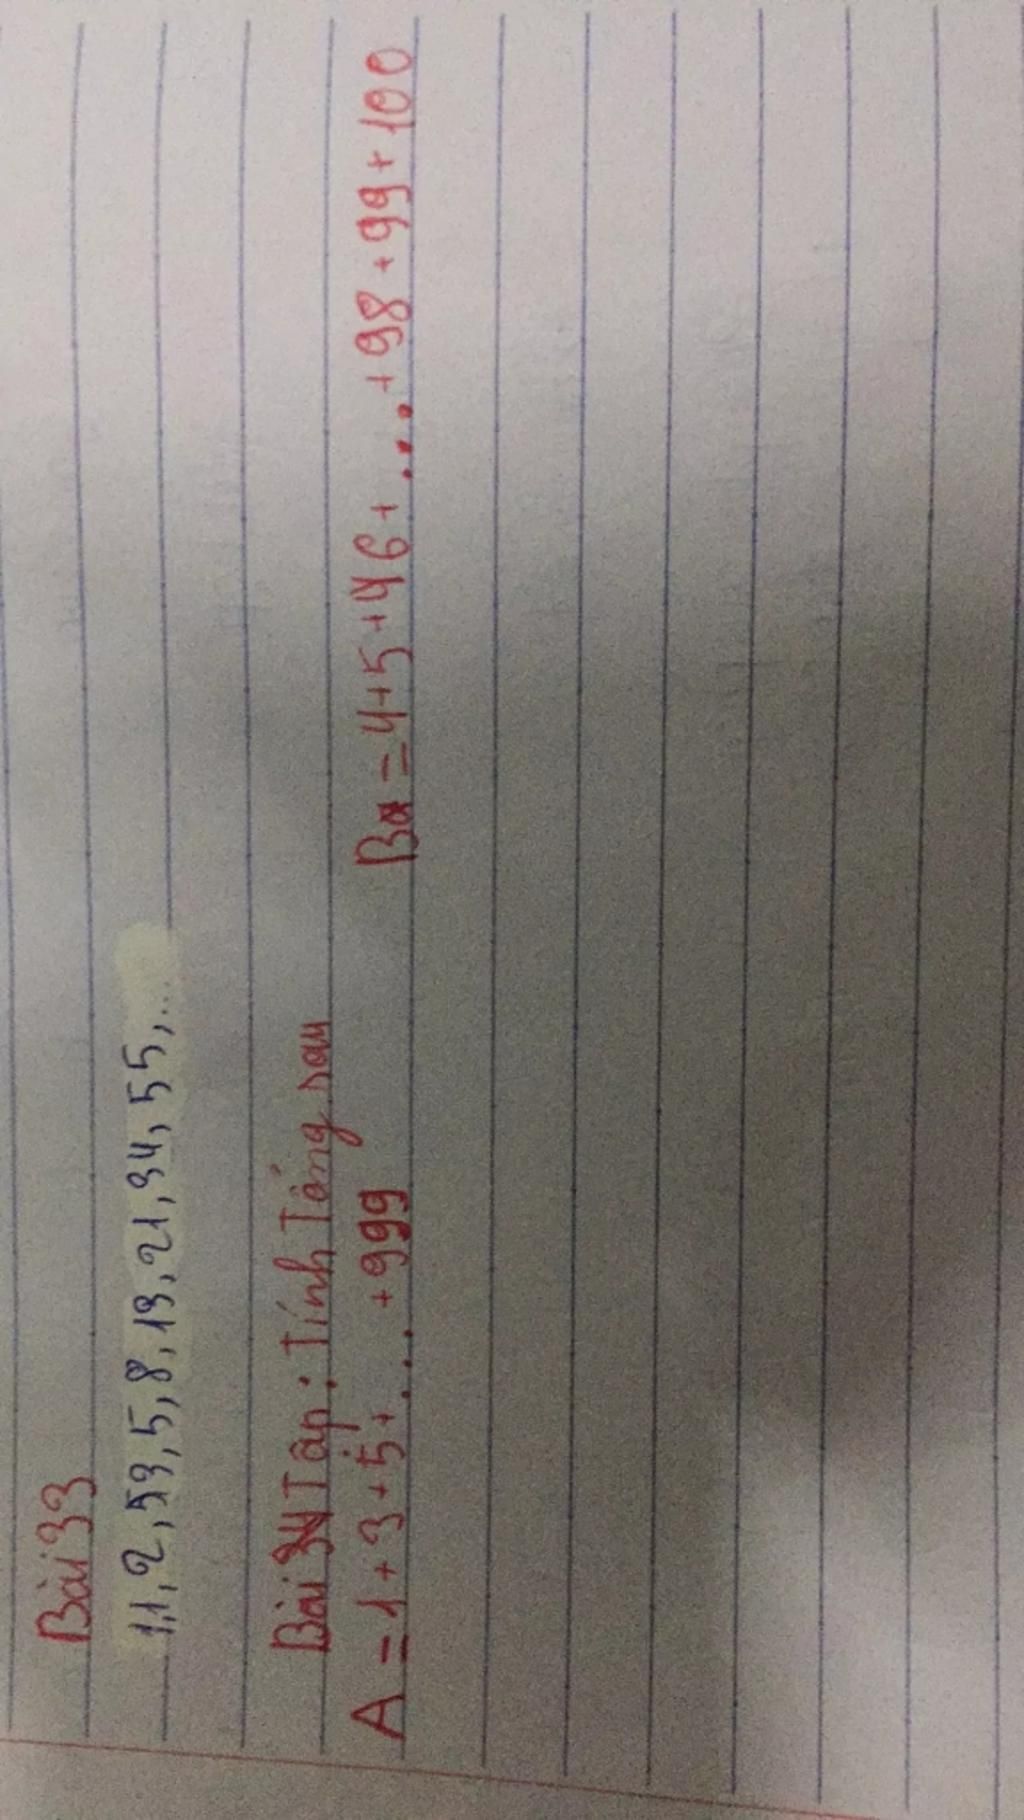 Bài 33
1,1,2,3,5,8,13,21,34,55,...
Bài Tập: Tính Tổng sau
A = 1 + 3 + 5 + .... + 999 B = 4 + 5 + 6 + .... + 98 + 99 + 100